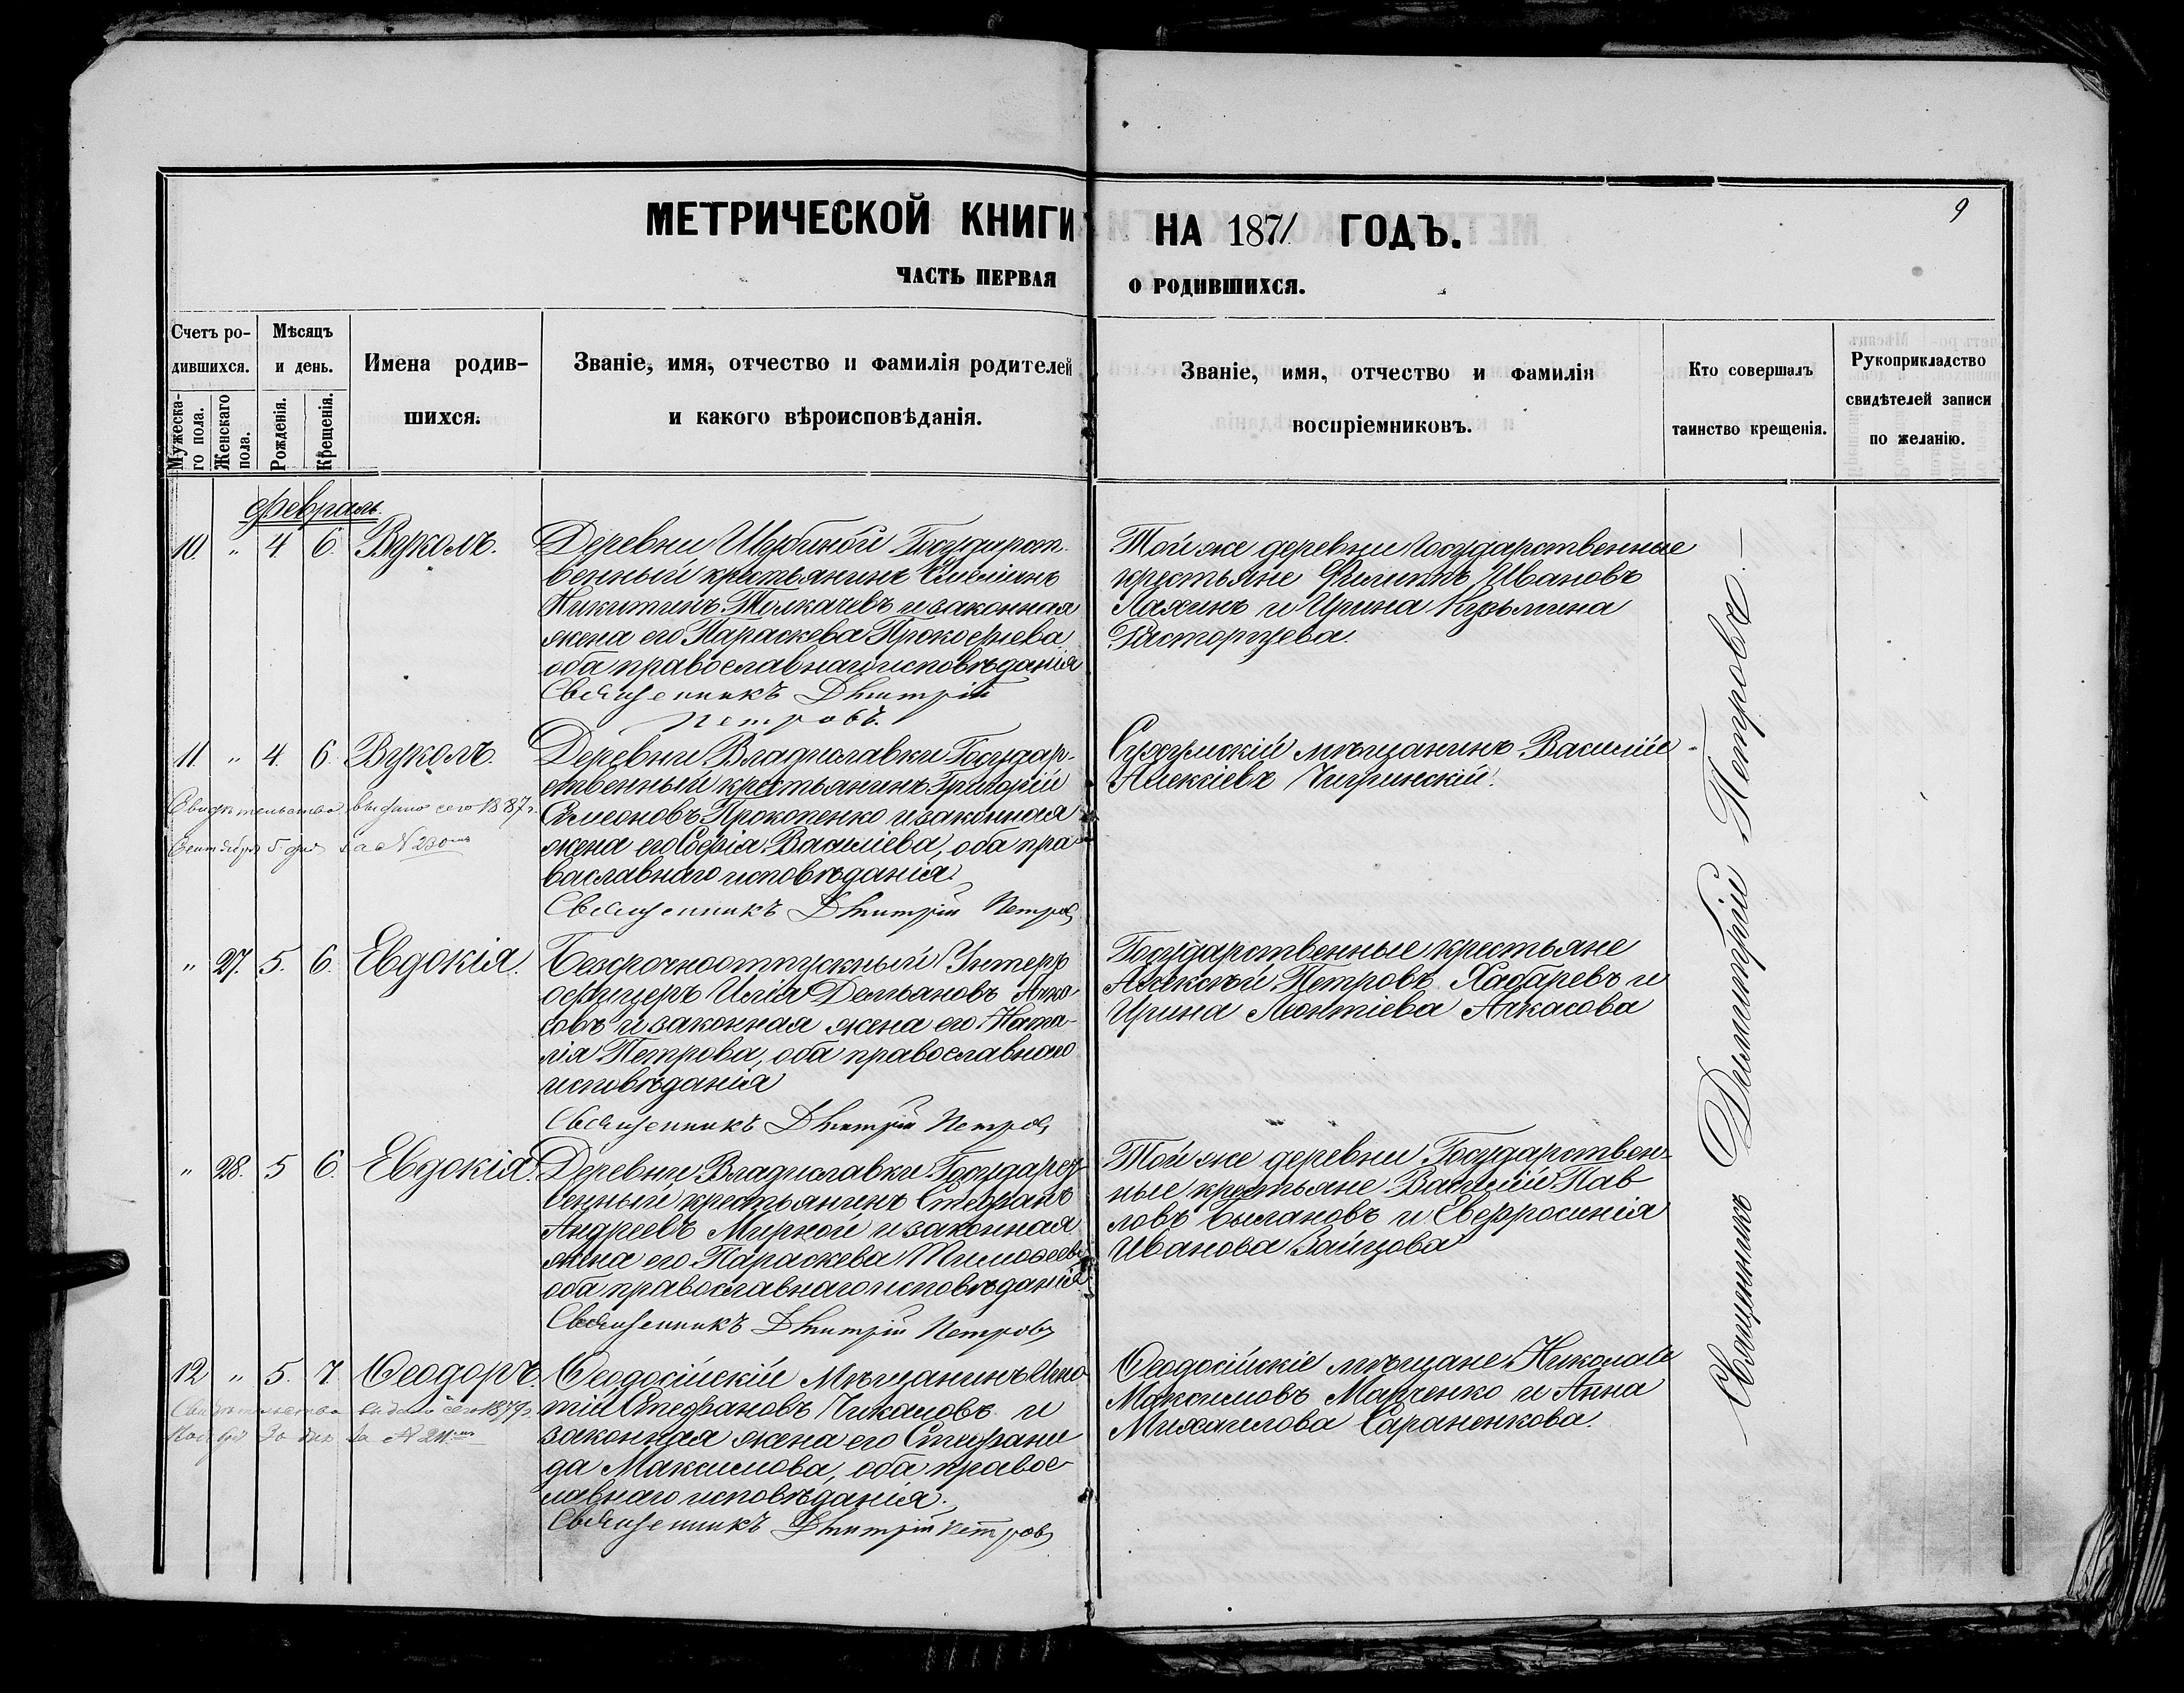 МЕТРИЧЕСКОЙ КНИГИ НА 1871 ГОДЪ.
9
ЧАСТЬ ПЕРВАЯ О РОДИВШИХСЯ.
Счетъ ро-
дившихся.
Мужеска-
го пола.
Женскаго
пола.
Мѣсяцъ
и день.
Рожденія.
Крещенія.
Имена родив-
шихся.
Званіе, имя, отчество и фамилія родителей
и какого вѣроисповѣданія.
Званіе, имя, отчество и фамилія
воспріемниковъ.
Кто совершалъ
таинство крещенія.
Рукоприкладство
свидѣтелей записи
по желанію.
Февраль.
10. " 4 6. Вуколъ.
Деревни Шубиной Государст-
венный крестьянинъ Симеонъ
Никитинъ Толкачевъ и законная
жена его Параскева Прокофіева
оба православнаго исповѣданія
Священникъ Дмитрій
Петровъ.
Той же деревни Государственные
крестьяне Филиппъ Ивановъ
Лахинъ и Ирина Кузьмина
Расторгуева.
11. " 4. 6. Вуколъ.
Свидѣтельство выдано сего 1887 г.
Сентября 5 дня за № 230мъ
Деревни Владиславки Государ-
ственный крестьянинъ Григорій
Симеоновъ Прокопенко и законная
жена его Софія Василіева, оба пра-
вославнаго исповѣданія.
Священникъ Дмитрій Петровъ
мѣщанинъ Василій
Алексіевъ Чигринскій.
" 27. 5. 6. Евдокія.
Безсрочноотпускный Унтеръ
офицеръ Илія Демьяновъ Ачка-
совъ и законная жена его Ната-
лія Петрова, оба православнаго
исповѣданія
Священникъ Дмитрій Петровъ
Государственные крестьяне
Алексѣй Петровъ Хабаревъ и
Ирина Леонтіева Ачкасова
" 28. 5 6. Евдокія.
Деревни Владиславки Государст-
венный крестьянинъ Стефанъ
Андреевъ Мирной и законная
жена его Параскева Тимоѳеева
оба православнаго исповѣданія.
Священникъ Дмитрій Петровъ
Той же деревни Государствен-
ные крестьяне Василій Пав
ловъ и Евфросинія
Иванова Зайцова
12 " 5. 7. Ѳеодоръ.
Свидѣтельство выдано сего 1879 г.
Ноября 30 дня за № 211мъ
Ѳеодосійскій Мѣщанинъ Игна-
тій Стефановъ Чикаловъ и
законная жена его Стефани
да Максимова, оба правос-
лавнаго исповѣданія.
Священникъ Дмитрій Петровъ
Ѳеодосійскіе мѣщане Николай
Максимовъ Марченко и Анна
Михаилова Сараненкова.
Священникъ Димитрій Петровъ